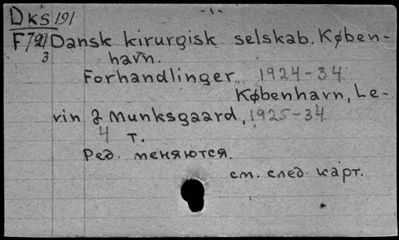 Dks 191 -1-
F791 Dansk kirurgisk selskab. Køben-
3 havn.
Forhandlinger. 1924-34
København, Le-
vin & Munksgaard, 1925-34
4 т.
Ред. меняются.
см. след. карт.